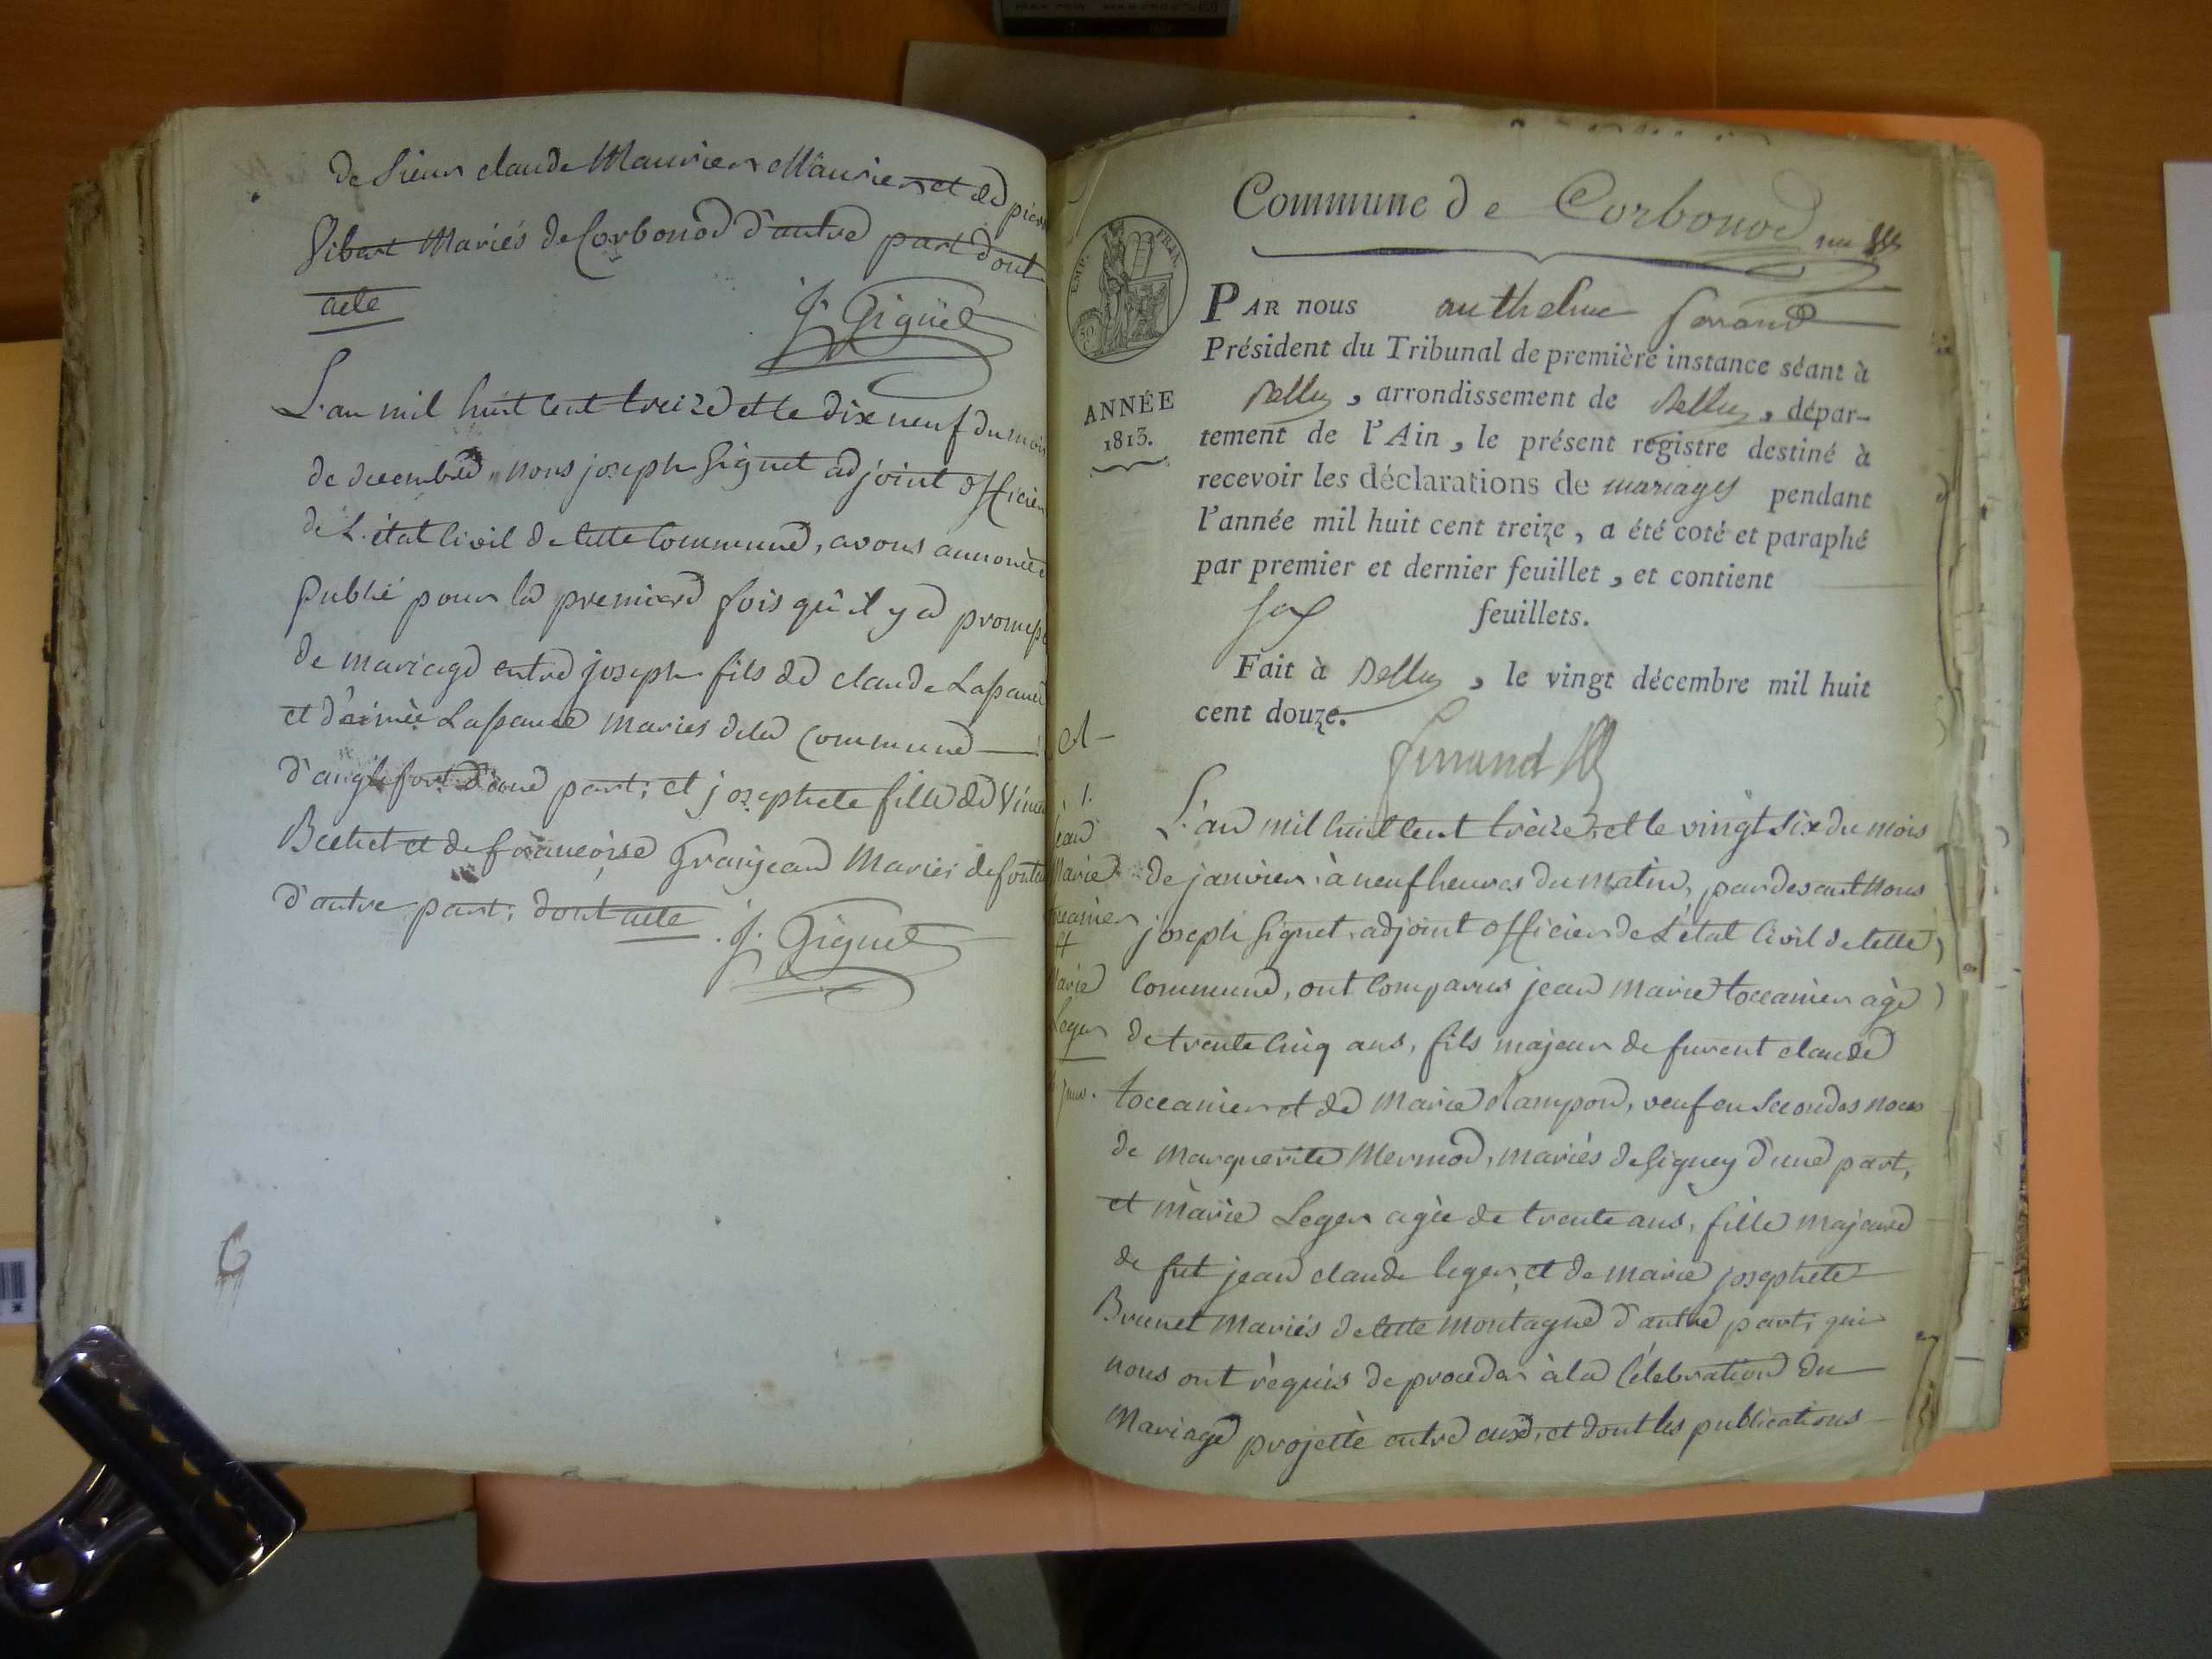 de Sieur claude Maurier Maurier et de pierr
Gibert Mariés de Corbonod d'autre part dont
acte
J. Giguet
L'an mil huit cent treize et le dix neuf du mois
de decembre, nous joseph Giguet adjoint officier
de L'état Civil de cette Commune, avons annoncé
publié pour la premiere fois qu'il y a
de mariage entre joseph fils de claude Lassance
et d'aimée Lassance Mariés de la Commune
d'anglefort d'une part; et josephete fille de
Bechet et de françoise Granjean Mariés de
d'autre part; dont acte J. Giguet
Commune de Corbonod
EMP. FRAN.
PAR nous anthelme ferrand
Président du Tribunal de première instance séant à
ANNÉE
1813.
Belley, arrondissement de Belley, dépar-
tement de l'Ain, le présent registre destiné à
recevoir les déclarations de mariages pendant
l'année mil huit cent treize, a été coté et paraphé
par premier et dernier feuillet, et contient
six feuillets.
Fait à Belley, le vingt décembre mil huit
cent douze.
ferrand
1.
jean
Marie
toccanier
et
Marie
Leger
L'an mil huit cent treize, et le vingt six du mois
de janvier à neuf heures du matin, pardevant Nous
joseph Giguet, adjoint officier de L'état Civil de cette
Commune, ont comparus jean marie toccanier agé
de trente cinq ans, fils majeur de furent claude
toccanier et de Marie clampon, veuf en Secondes noces
de marguerite Mermod, mariés de Gigney d'une part,
et marie Leger agée de trente ans, fille majeure
de fut jean claude leger, et de marie josephete
Brunet mariés de cette montagne d'autre part; qui
nous ont réquis de proceder à la Célebration du
Mariage projetté entre eux, et dont les publications